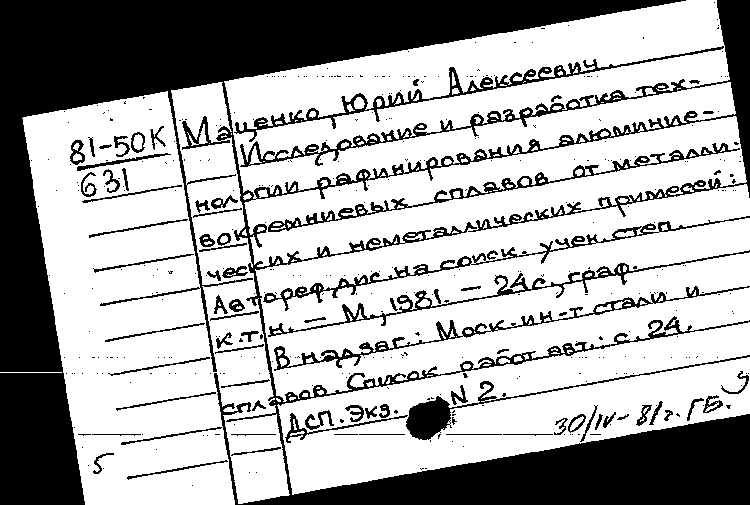 81-50К
631
Маценко, Юрий Алексеевич.
Исследование и разработка тех-
нологии рафинирования алюминие-
вокремниевых сплавов от металли-
ческих и неметаллических примесей:
Автореф. дис. на соиск. учен. степ.
к.т.н. — М., 1981. — 24с., граф.
В надзаг.: Моск. ин-т стали и
сплавов. Список работ авт.: с. 24.
ДСП. Экз. N 2.
30/IV-81г. ГБ.
5